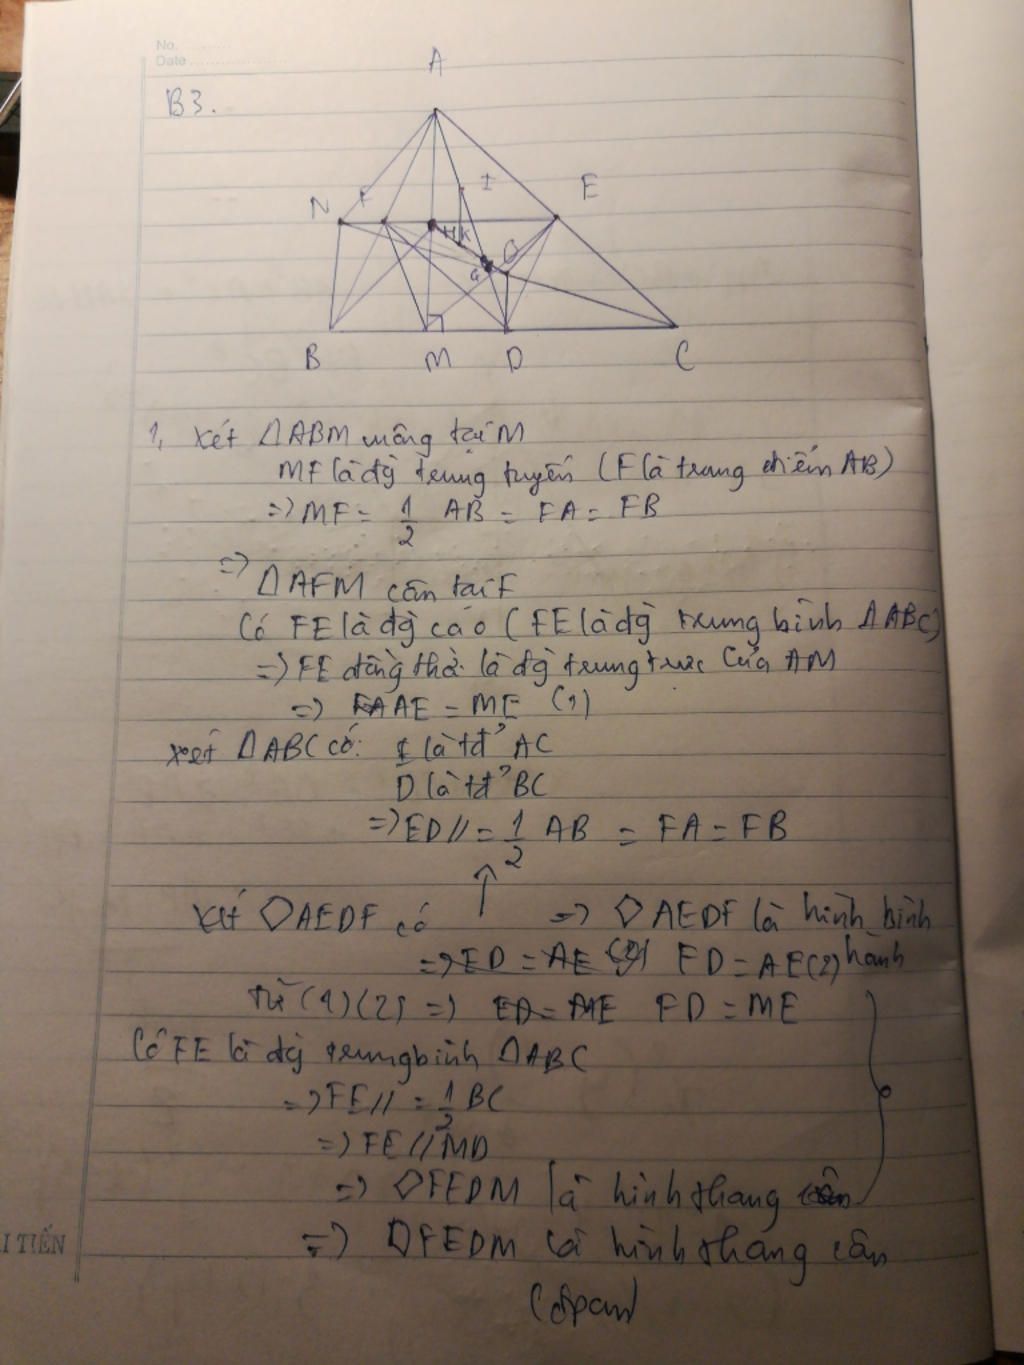 No.
Date
B3.
A
N F I E
H K O
G
B M D C
1, Xét ΔABM vuông tại M
MF là đg trung tuyến (F là trung điểm AB)
=> MF = 1/2 AB = FA = FB
=> ΔAFM cân tại F
Có FE là đg cao (FE là đg trung bình ΔABC)
=> FE đồng thời là đg trung trực của AM
=> AE = ME (1)
Xét ΔABC có: E là tđ' AC
D là tđ' BC
=> ED // = 1/2 AB = FA = FB
Xét ◇AEDF có ↑ => ◇AEDF là hình bình
=> ED = AE (2) FD = AE (2) hành
Từ (1)(2) => EA = ME FD = ME
Có FE là đg trung bình ΔABC
=> FE // = 1/2 BC
=> FE // MD
=> ◇FEDM là hình thang cân
=> ◇FEDM là hình thang cân
(đpcm)
I TIẾN